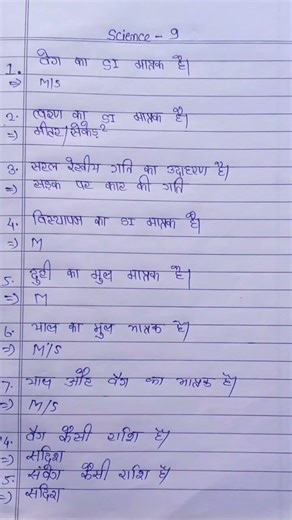 Science - 9
1. वेग का SI मात्रक है।
=) M/S
2. त्वरण का SI मात्रक है।
=) मीटर/सेकेंड²
3. सरल रेखीय गति का उदाहरण है।
=) सड़क पर कार की गति
4. विस्थापन का SI मात्रक है।
=) M
5. दुरी का मुल मात्रक है।
=) M
6. चाल का मुल मात्रक है।
=) M/S
7. चाल और वेग का मात्रक है।
=) M/S
14. वेग कैसी राशि है।
=) सदिश
5. संवेग कैसी राशि है।
=) सदिश